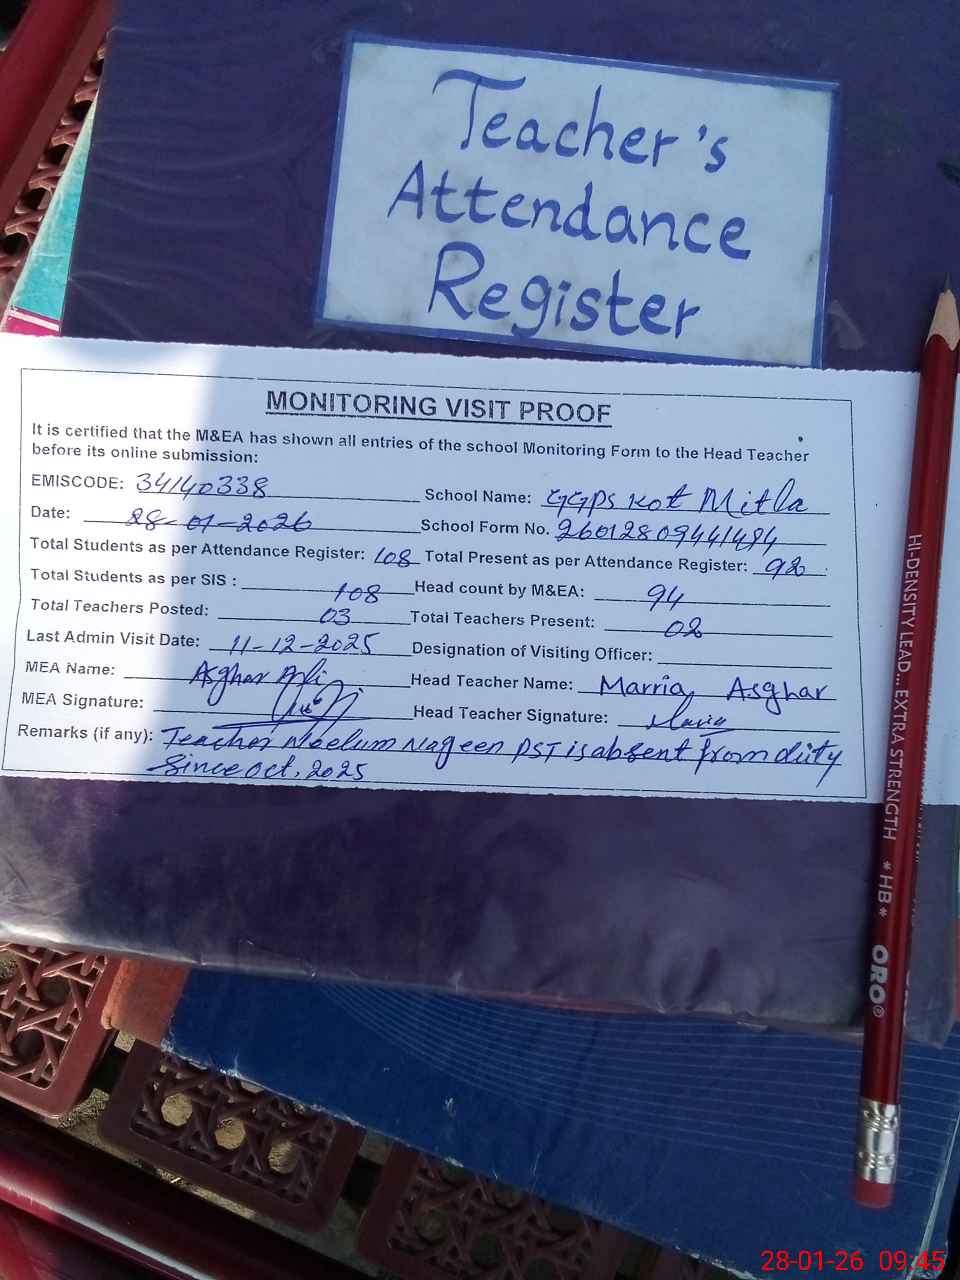 Teacher's
Attendance
Register
MONITORING VISIT PROOF
It is certified that the M&EA has shown all entries of the school Monitoring Form to the Head Teacher
before its online submission:
EMISCODE: 34140338 School Name: GGPS Kot Mitla
Date: 28-01-2026 School Form No. 26012809441494
Total Students as per Attendance Register: 108 Total Present as per Attendance Register: 92
Total Students as per SIS : 108 Head count by M&EA: 94
Total Teachers Posted: 03 Total Teachers Present: 02
Last Admin Visit Date: 11-12-2025 Designation of Visiting Officer:
MEA Name: Asghar Ali Head Teacher Name: Marria Asghar
MEA Signature: Head Teacher Signature: Maria
Remarks (if any): Teacher Neelum Nageen PST is absent from duty
Since Oct, 2025
HI-DENSITY LEAD... EXTRA STRENGTH *HB* ORO®
28-01-26 09:45